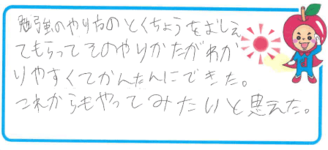 勉強のやり方のとくちょうをおしえ
てもらってそのやりかたがわか
りやすくてかんたんにできた。
これからもやってみたいと思えた。